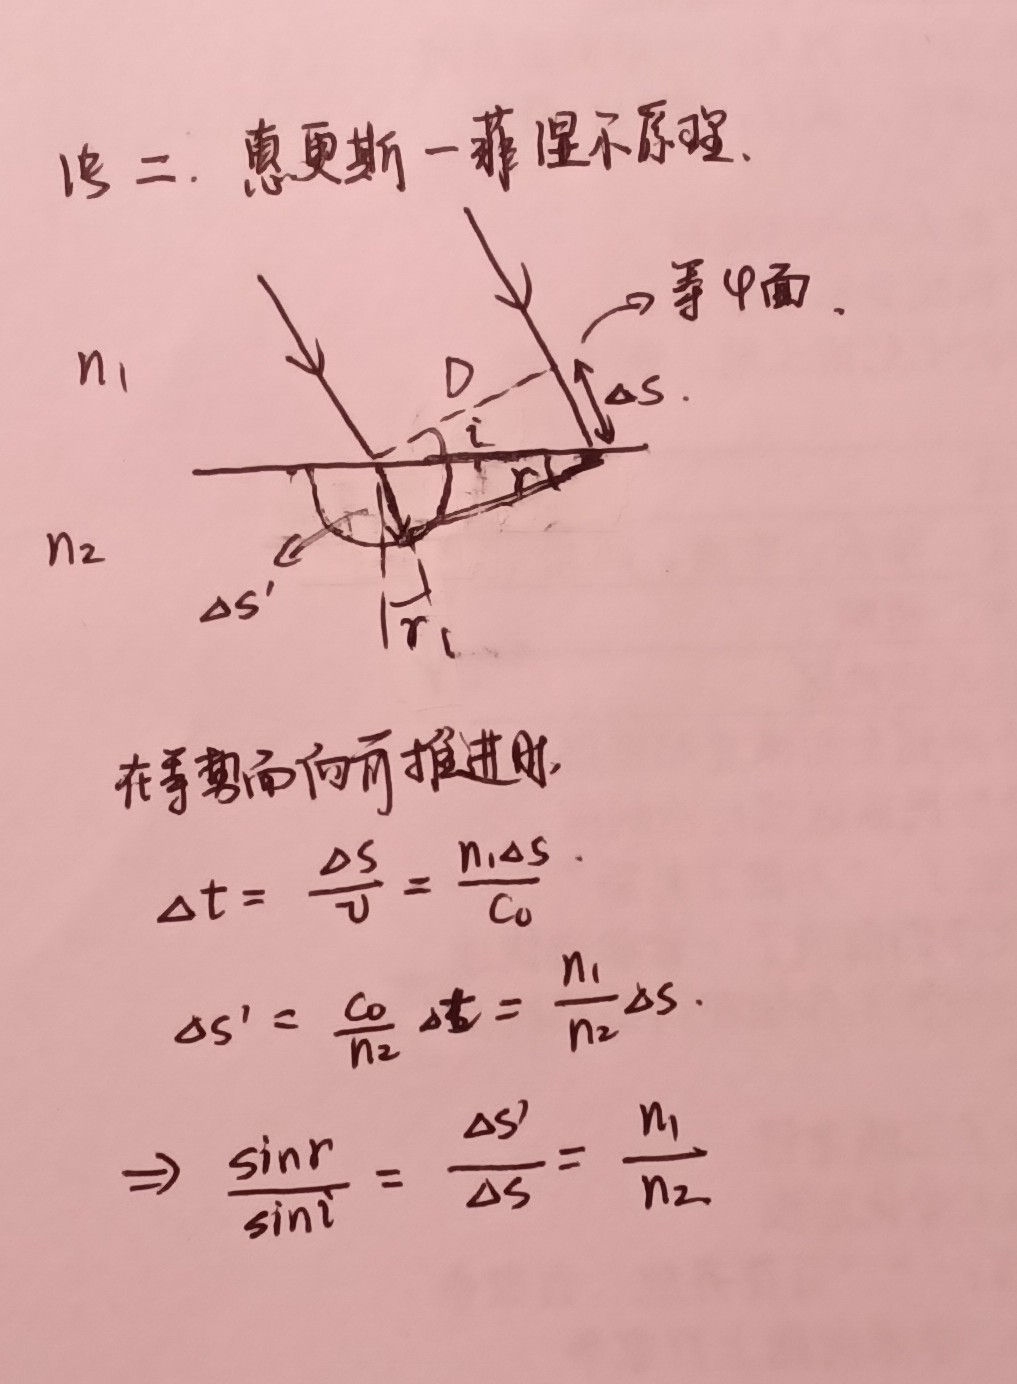 法二. 惠更斯-菲涅尔原理.
等φ面.
n₁
D
Δs.
i
r
n₂
Δs'
r
在等势面向前推进时,
Δt = Δs/v = n₁Δs/C₀.
Δs' = C₀/n₂ Δt = n₁/n₂ Δs.
⇒ sinr/sini = Δs'/Δs = n₁/n₂